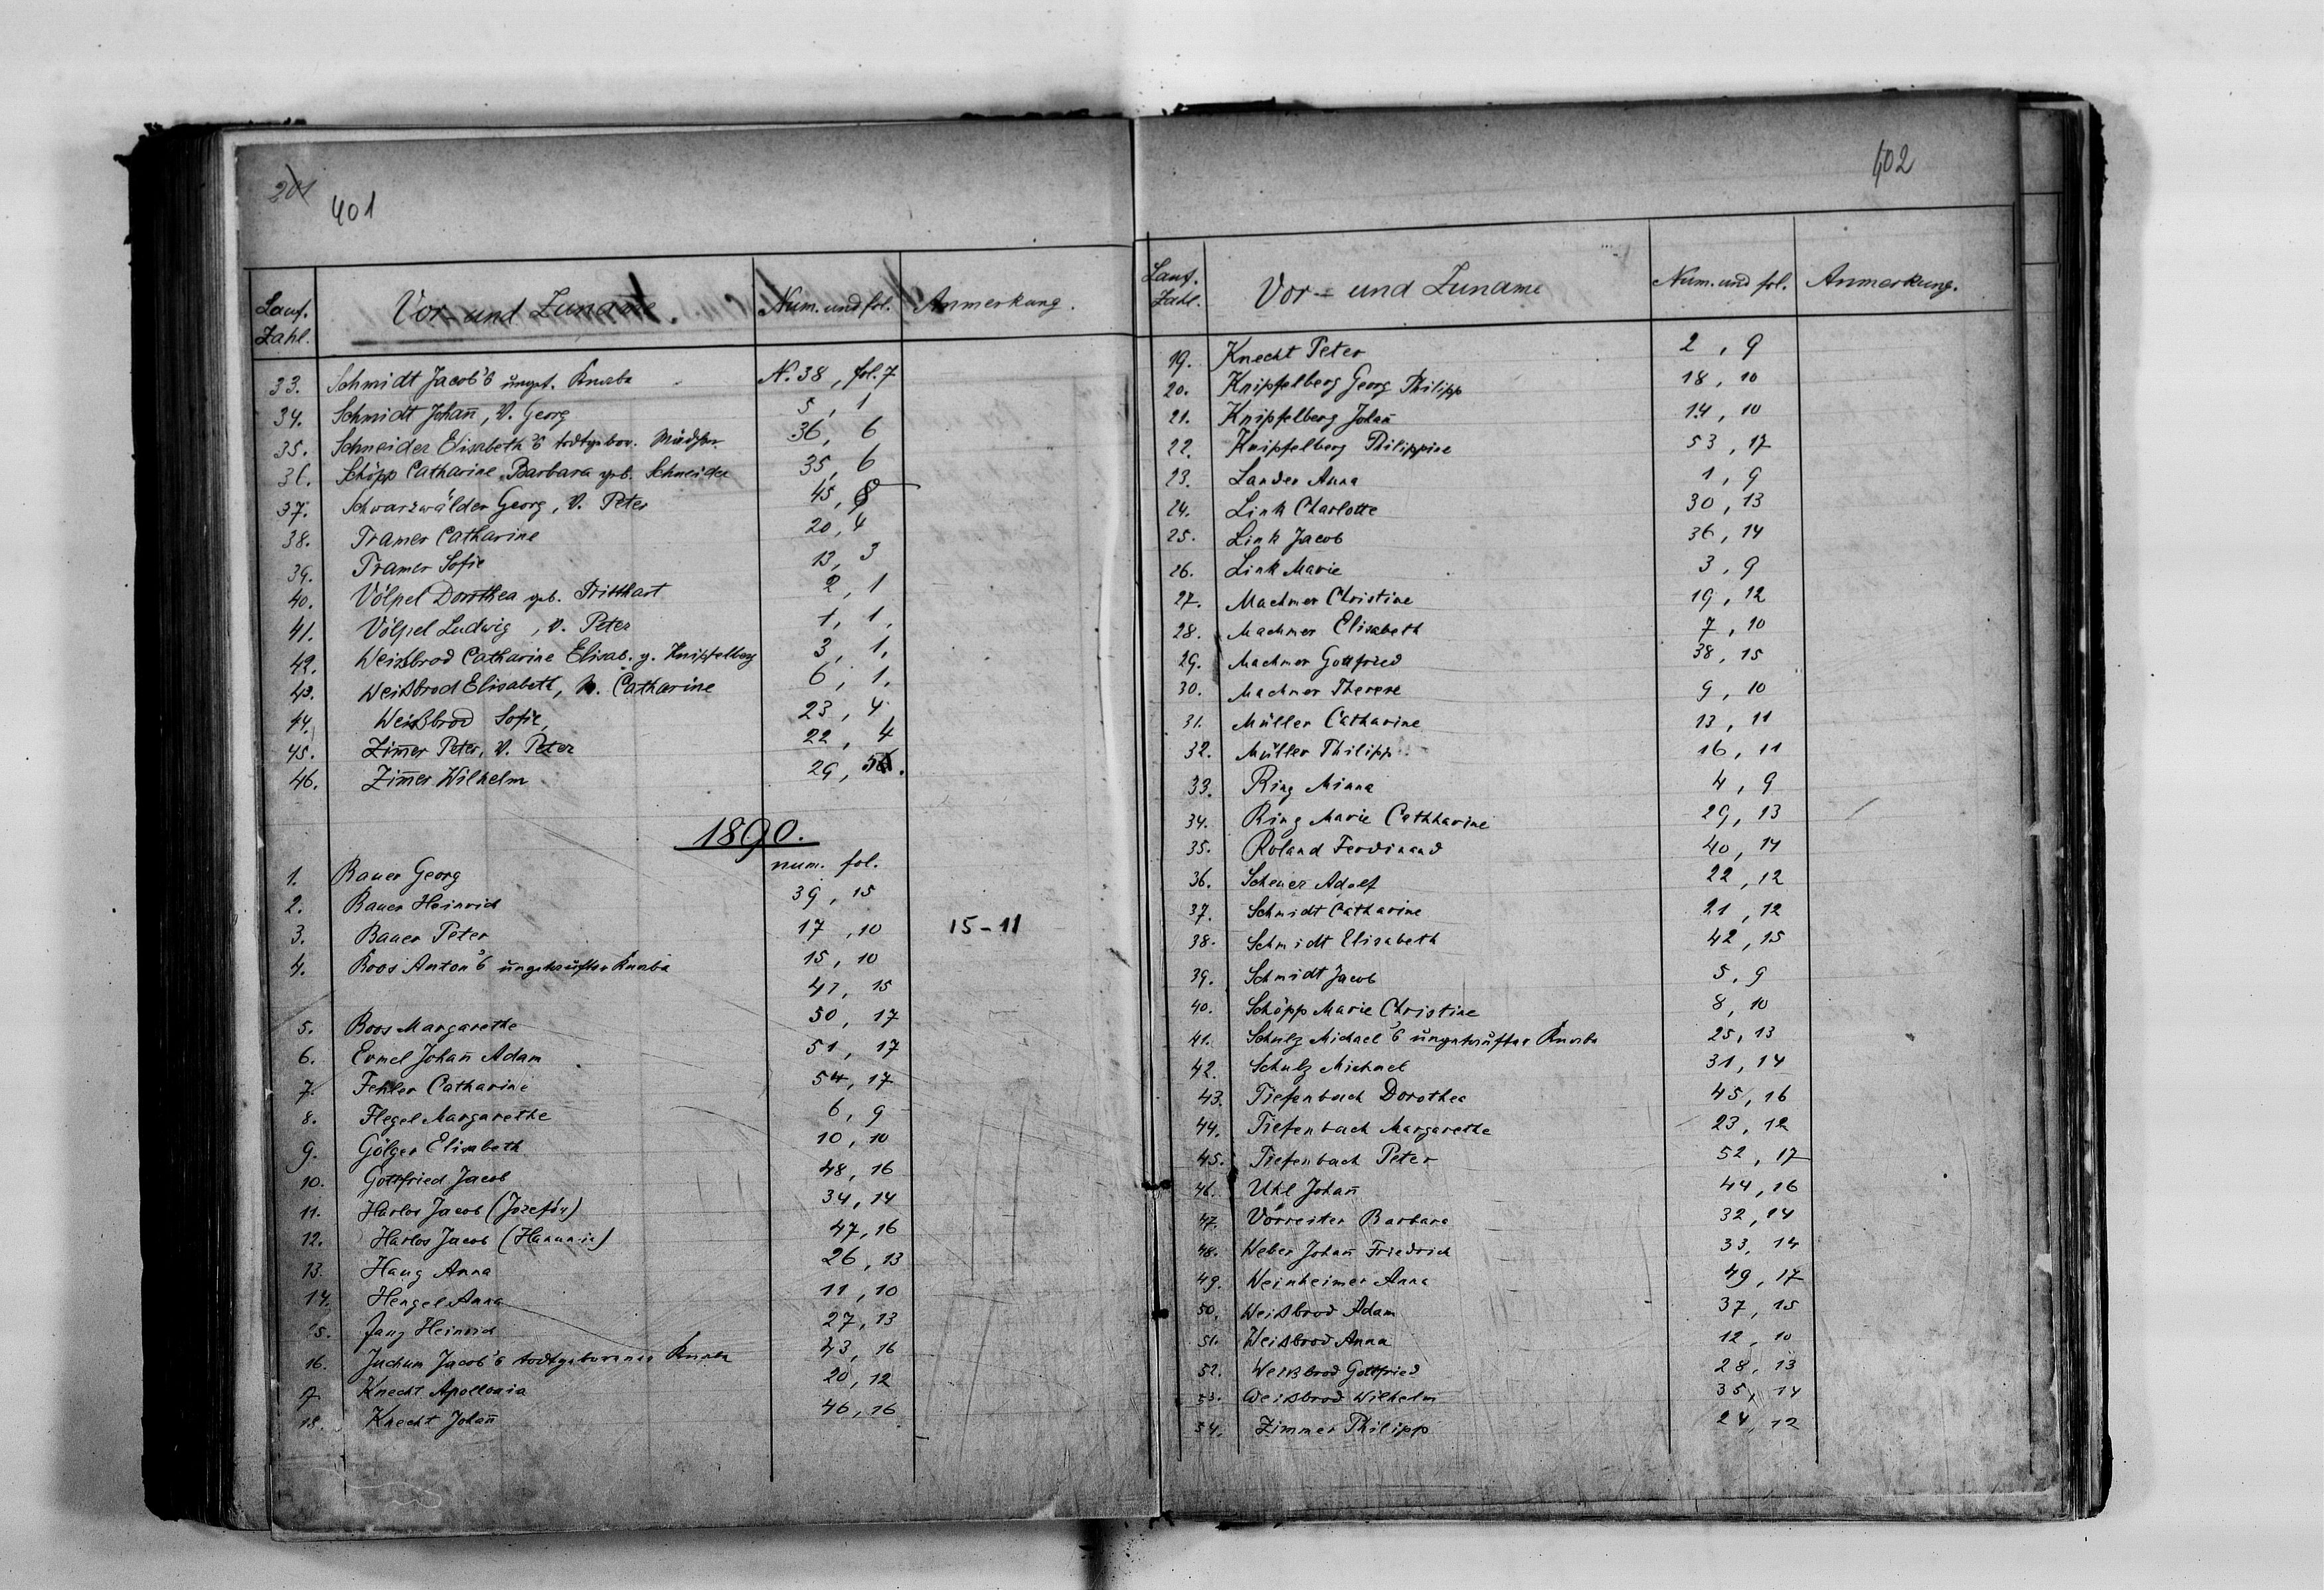 201
401
Lauf. Zahl. Vor- und Zuname. Num. und fol. Anmerkung.
33. Schmidt Jacob's unget. Knabe N. 38, fol. 7
34. Schmidt Johañ, V. Georg 5, 1
35. Schneider Elisabeth's todtgebor. Mädchen 36, 6
36. Schöpp Catharine Barbara geb. Schneider 35, 6
37. Schwarzwälder Georg, V. Peter 45, 8
38. Tramer Catharine 20, 4
39. Tramer Sofie 13, 3
40. Völpel Dorothea geb. Tritthart 2, 1
41. Völpel Ludwig, V. Peter 1, 1.
42. Weißbrod Catharine Elisab. g. Knipfelberg 3, 1.
43. Weißbrod Elisabeth, M. Catharine 6, 1.
44. Weißbrod Sofie, 23, 4
45. Zim̃er Peter, V. Peter 22, 4
46. Zim̃er Wilhelm 29, 5.
1890.
num. fol.
1. Bauer Georg 39, 15
2. Bauer Heinrich 17, 10 15-11
3. Bauer Peter 15, 10
4. Boos Anton's ungetaufter Knabe 41, 15
5. Boos Margarethe 50, 17
6. Ermel Johañ Adam 51, 17
7. Fehler Catharine 54, 17
8. Flegel Margarethe 6, 9
9. Gölger Elisabeth 10, 10
10. Gottfried Jacob 48, 16
11. Harlos Jacob (Josefów) 34, 14
12. Harlos Jacob 47, 16
13. Haug Anna 26, 13
14. Hengel Anna 11, 10
15. Jung Heinrich 27, 13
16. Juchum Jacob's todtgeborener Knabe 43, 16
17. Knecht Apollonia 20, 12
18. Knecht Johañ 46, 16
402
Lauf. Zahl. Vor- und Zuname Num. und fol. Anmerkung.
19. Knecht Peter 2, 9
20. Knipfelberg Georg Philipp 18, 10
21. Knipfelberg Johañ 14, 10
22. Knipfelberg Philippine 53, 17
23. Lander Anna 1, 9
24. Link Charlotte 30, 13
25. Link Jacob 36, 14
26. Link Marie 3, 9
27. Machmer Christine 19, 12
28. Machmer Elisabeth 7, 10
29. Machmer Gottfried 38, 15
30. Machmer Therese 9, 10
31. Müller Catharine 13, 11
32. Müller Philipp 16, 11
33. Ring Minna 4, 9
34. Ring Marie Cathharine 29, 13
35. Roland Ferdinand 40, 14
36. Scheuer Adolf 22, 12
37. Schmidt Catharine 21, 12
38. Schmidt Elisabeth 42, 15
39. Schmidt Jacob 5, 9
40. Schöpp Marie Christine 8, 10
41. Schulz Michael's ungetaufter Knabe 25, 13
42. Schulz Michael 31, 14
43. Tiefenbach Dorothea 45, 16
44. Tiefenbach Margarethe 23, 12
45. Tiefenbach Peter 52, 17
46. Uhl Johañ 44, 16
47. Vorreiter Barbara 32, 14
48. Weber Johañ Friedrich 33, 14
49. Weinheimer Anna 49, 17
50. Weißbrod Adam 37, 15
51. Weißbrod Anna 12, 10
52. Weißbrod Gottfried 28, 13
53. Weißbrod Wilhelm 35, 14
54. Zimmer Philipp 24, 12